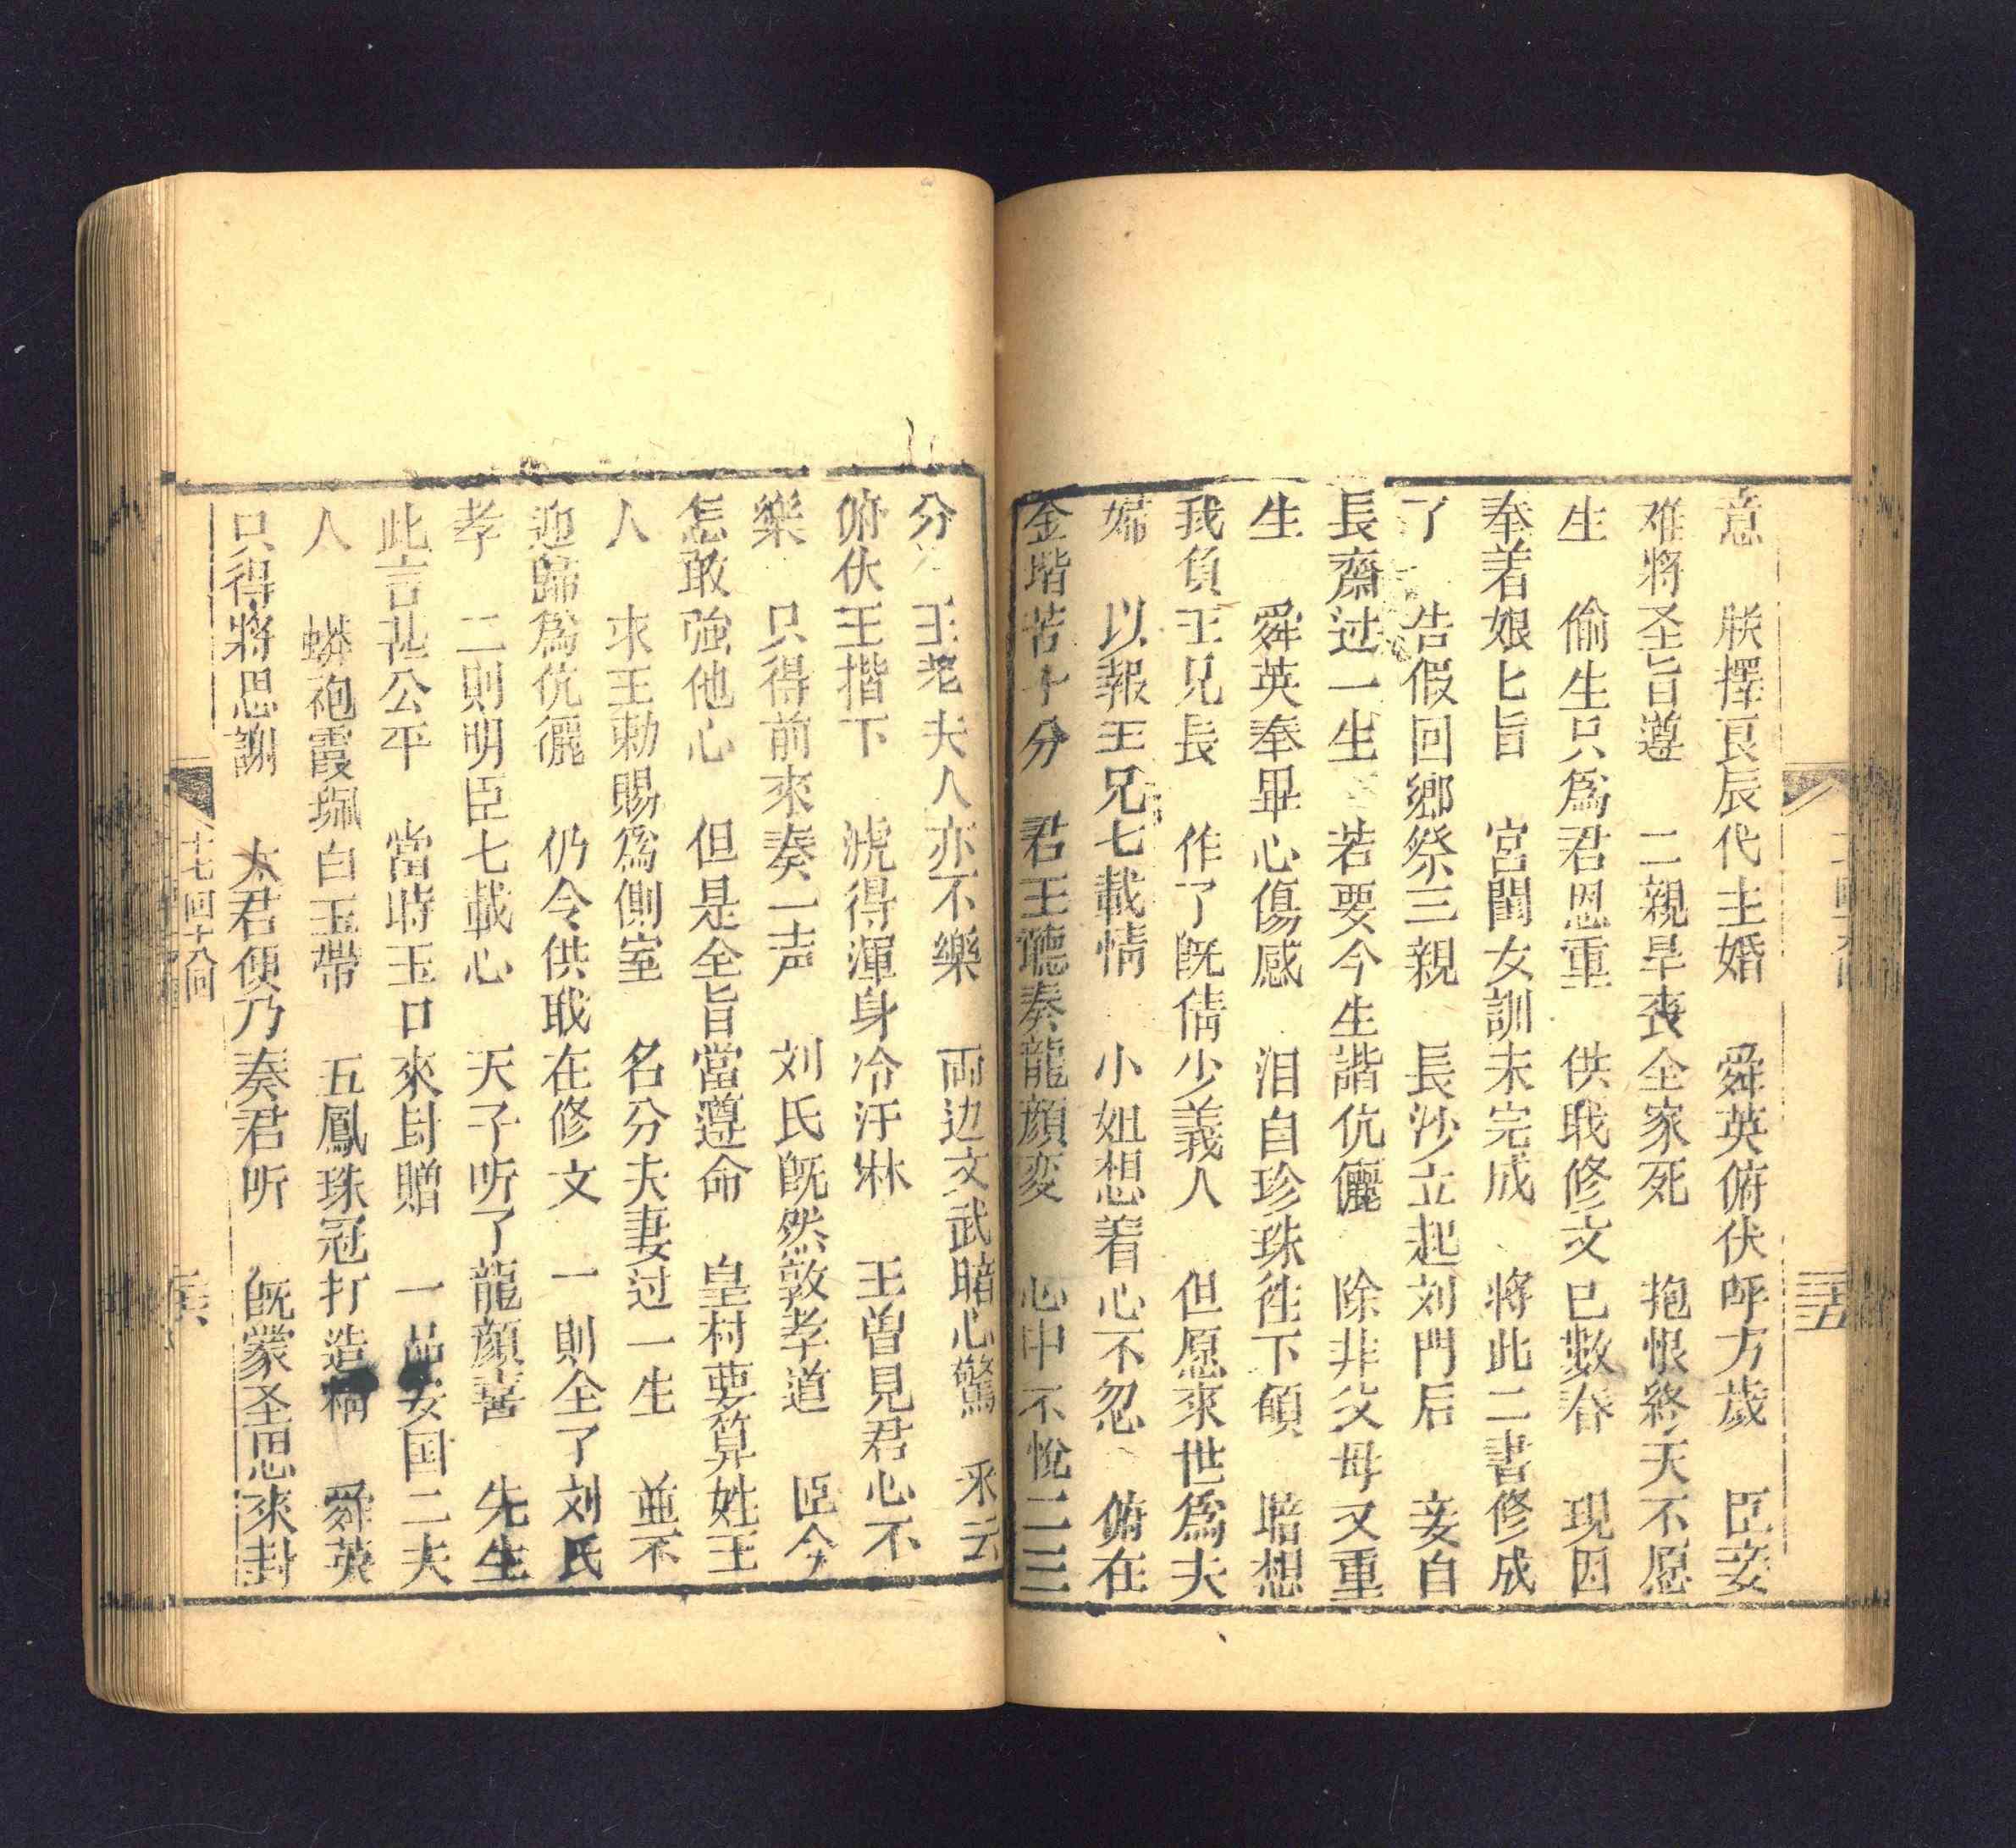 意　朕擇良辰代主婚　舜英俯伏呼方歲　臣妾
难將圣旨遵　二親早丧全家死　抱恨終天不愿
生　偷生只爲君恩重　供戝修文已數春　現因
奉着娘匕旨　宮闈女訓未完成　將此二書修成
了　告假回鄉祭三親　長沙立起刘門后　妾自
長齋过一生　若要今生諧伉儷　除非父母又重
生　舜英奉畢心傷感　泪自珍珠徃下傾　暗想
我負王兄長　作了旣倩少義人　但愿來世爲夫
婦　以報王兄七載情　小姐想着心不忍　俯在
金堦苦十分　君王聽奏龍顔変　心中不悅二三
分　王老夫人亦不樂　両边文武暗心驚　釆云
俯伏王揩下　淲得渾身冷汗淋　王曽見君心不
樂　只得前來奏一声　刘氏旣然敦孝道　臣今
怎敢強他心　但是全旨當遵命　皇村要筭姓王
人　求王勅賜爲側室　名分夫妻过一生　並不
迎歸爲伉儷　仍令供戝在修文　一則全了刘氏
孝　二則明臣七載心　天子听了龍顔喜　先生
此言甚公平　當時玉口來封贈　一品安国二夫
人　蟒袍霞珮白玉帶　五鳳珠冠打造稱　舜英
只得將思謝　太君便乃奏君听　旣蒙圣思來封
十七回十八回